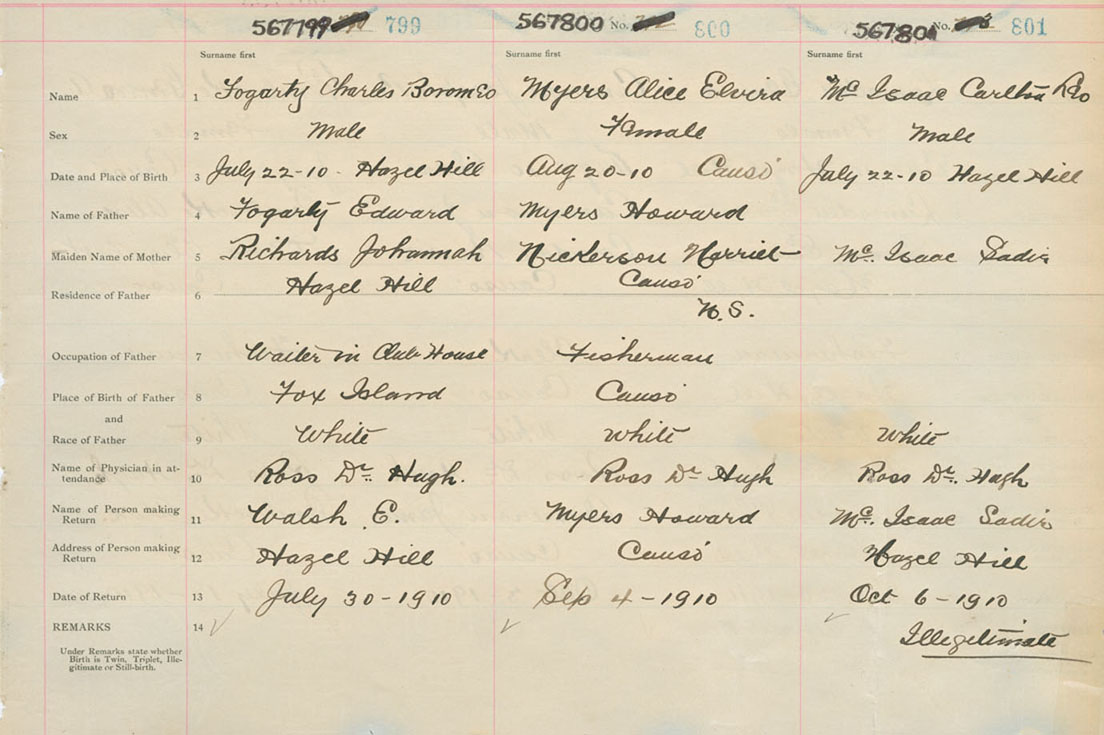 567799 799 567800 No. 800 567801 No. 801
Surname first Surname first Surname first
Name 1 Fogarty Charles Boromeo Myers Alice Elvira Mc Isaac Carlton Leo
Sex 2 Male Female Male
Date and Place of Birth 3 July 22-10 - Hazel Hill Aug 20-10 Canso July 22-10 Hazel Hill
Name of Father 4 Fogarty Edward Myers Howard
Maiden Name of Mother 5 Richards Johannah Nickerson Harriet Mc. Isaac Sadie
Residence of Father 6 Hazel Hill Canso
N.S.
Occupation of Father 7 Waiter in Club House Fisherman
Place of Birth of Father 8 Fox Island Canso
and
Race of Father 9 White White White
Name of Physician in at-
tendance 10 Ross Dr. Hugh. Ross Dr Hugh Ross Dr. Hugh
Name of Person making
Return 11 Walsh E. Myers Howard Mc. Isaac Sadie
Address of Person making
Return 12 Hazel Hill Canso Hazel Hill
Date of Return 13 July 30-1910 Sep 4-1910 Oct 6-1910
REMARKS 14 Illegitimate
Under Remarks state whether
Birth is Twin, Triplet, Ille-
gitimate or Still-birth.